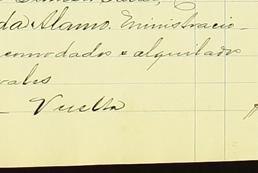 da Alamo. Ministracio-
comodados e alquilado
rales
- Vuelta